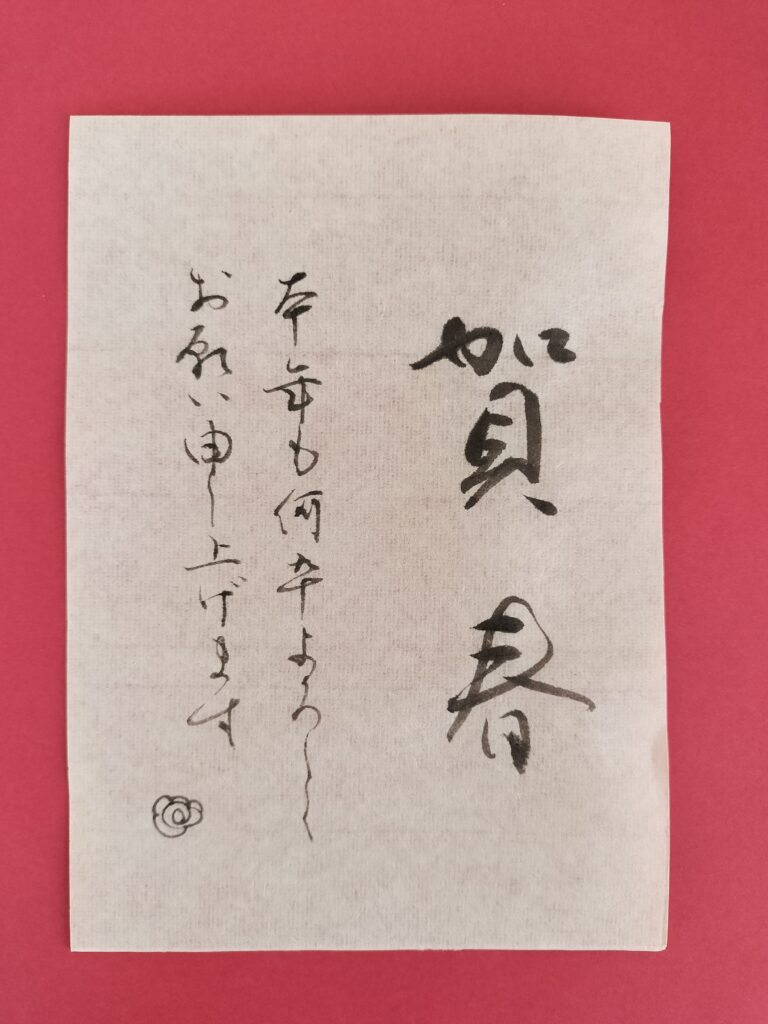 賀春
本年も何卒よろしく
お願い申し上げます